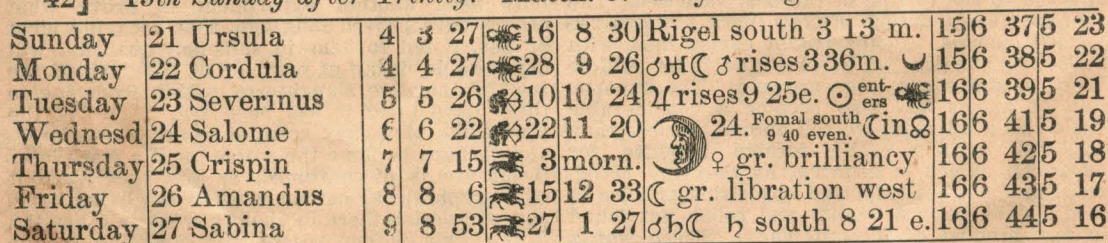 42] 15th Sunday after Trinity.
Sunday 21 Ursula 4 3 27 ♏16 8 30 Rigel south 3 13 m. 15 6 37 5 23
Monday 22 Cordula 4 4 27 ♏28 9 26 ☌♅☾ ♂ rises 3 36m. 15 6 38 5 22
Tuesday 23 Severinus 5 5 26 ♐10 10 24 ♃ rises 9 25e. ☉ enters ♏ 16 6 39 5 21
Wednesd 24 Salome 6 6 22 ♐22 11 20 24. Fomal south 9 40 even. ☾in☊ 16 6 41 5 19
Thursday 25 Crispin 7 7 15 ♑ 3 morn. ♀ gr. brilliancy 16 6 42 5 18
Friday 26 Amandus 8 8 6 ♑15 12 33 ☾ gr. libration west 16 6 43 5 17
Saturday 27 Sabina 9 8 53 ♑27 1 27 ☌♄☾ ♄ south 8 21 e. 16 6 44 5 16